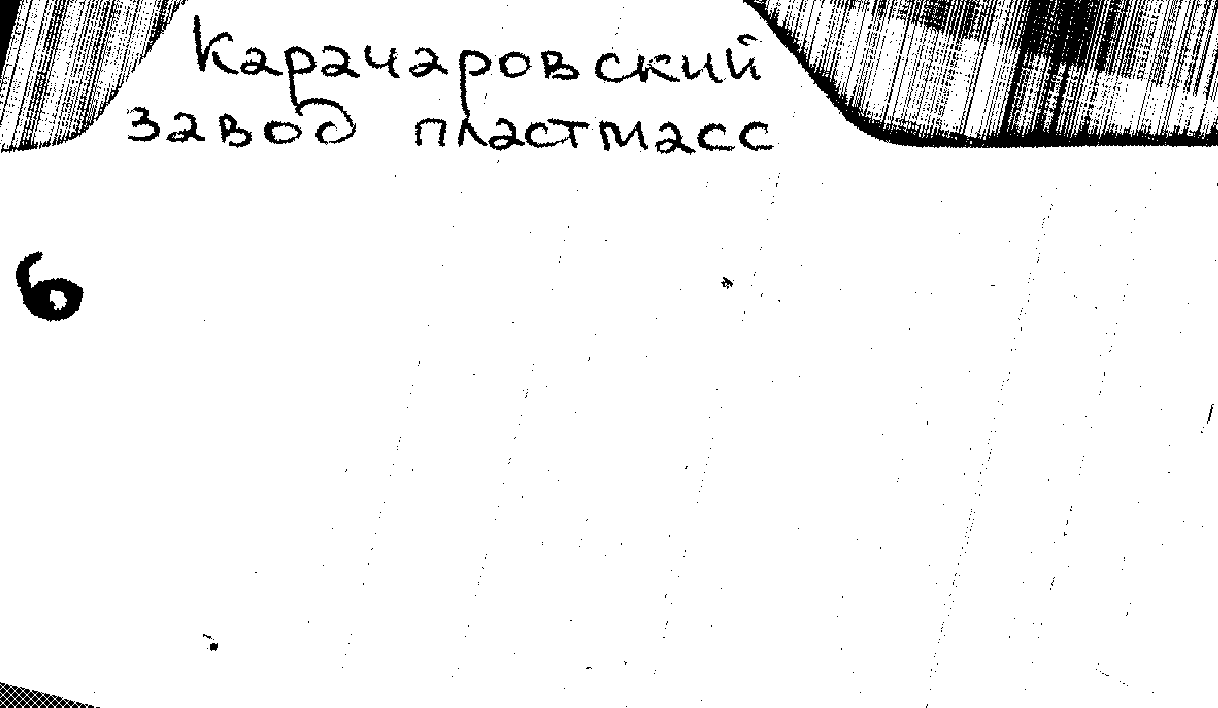 Карачаровский
завод пластмасс
6